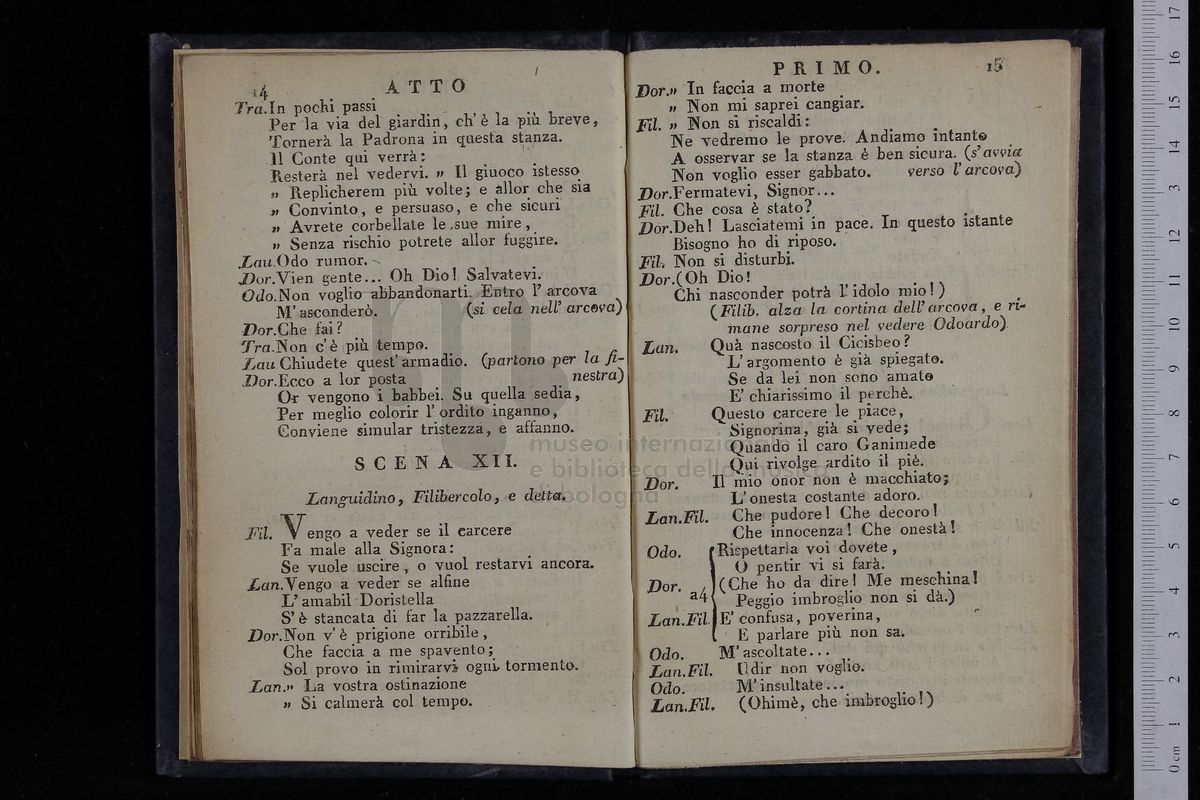 14
ATTO
Tra.In pochi passi
Per la via del giardin, ch'è la più breve,
Tornerà la Padrona in questa stanza.
Il Conte qui verrà:
Resterà nel vedervi. „ Il giuoco istesso
„ Replicherem più volte; e allor che sia
„ Convinto, e persuaso, e che sicuri
„ Avrete corbellate le sue mire,
„ Senza rischio potrete allor fuggire.
Lau.Odo rumor.
Dor.Vien gente... Oh Dio! Salvatevi.
Odo.Non voglio abbandonarti. Entro l'arcova
M'asconderò. (si cela nell' arcova)
Dor.Che fai?
Tra.Non c'è più tempo.
Lau Chiudete quest' armadio. (partono per la fi-
Dor.Ecco a lor posta nestra)
Or vengono i babbei. Su quella sedia,
Per meglio colorir l'ordito inganno,
Conviene simular tristezza, e affanno.
SCENA XII.
Languidino, Filibercolo, e detta.
Fil. Vengo a veder se il carcere
Fa male alla Signora:
Se vuole uscire, o vuol restarvi ancora.
Lan.Vengo a veder se alfine
L'amabil Doristella
S'è stancata di far la pazzarella.
Dor.Non v'è prigione orribile,
Che faccia a me spavento;
Sol provo in rimirarvi ogni tormento.
Lan.„ La vostra ostinazione
„ Si calmerà col tempo.
PRIMO.
15
Dor.„ In faccia a morte
„ Non mi saprei cangiar.
Fil. „ Non si riscaldi:
Ne vedremo le prove. Andiamo intanto
A osservar se la stanza è ben sicura. (s'avvia
Non voglio esser gabbato. verso l'arcova)
Dor.Fermatevi, Signor...
Fil. Che cosa è stato?
Dor.Deh! Lasciatemi in pace. In questo istante
Bisogno ho di riposo.
Fil. Non si disturbi.
Dor.(Oh Dio!
Chi nasconder potrà l'idolo mio!)
(Filib. alza la cortina dell' arcova, e ri-
mane sorpreso nel vedere Odoardo)
Lan. Quà nascosto il Cicisbeo?
L'argomento è già spiegato.
Se da lei non sono amato
E' chiarissimo il perchè.
Fil. Questo carcere le piace,
Signorina, già si vede;
Quando il caro Ganimede
Qui rivolge ardito il piè.
Dor. Il mio onor non è macchiato;
L'onesta costante adoro.
Lan.Fil. Che pudore! Che decoro!
Che innocenza! Che onestà!
Odo. Rispettarla voi dovete,
O pentir vi si farà.
Dor. a4 (Che ho da dire! Me meschina!
Peggio imbroglio non si dà.)
Lan.Fil. E' confusa, poverina,
E parlare più non sa.
Odo. M'ascoltate...
Lan.Fil. Udir non voglio.
Odo. M'insultate...
Lan.Fil. (Ohimè, che imbroglio!)
museo internazionale
e biblioteca della musica
di bologna
0 cm 1 2 3 4 5 6 7 8 9 10 11 12 13 14 15 16 17